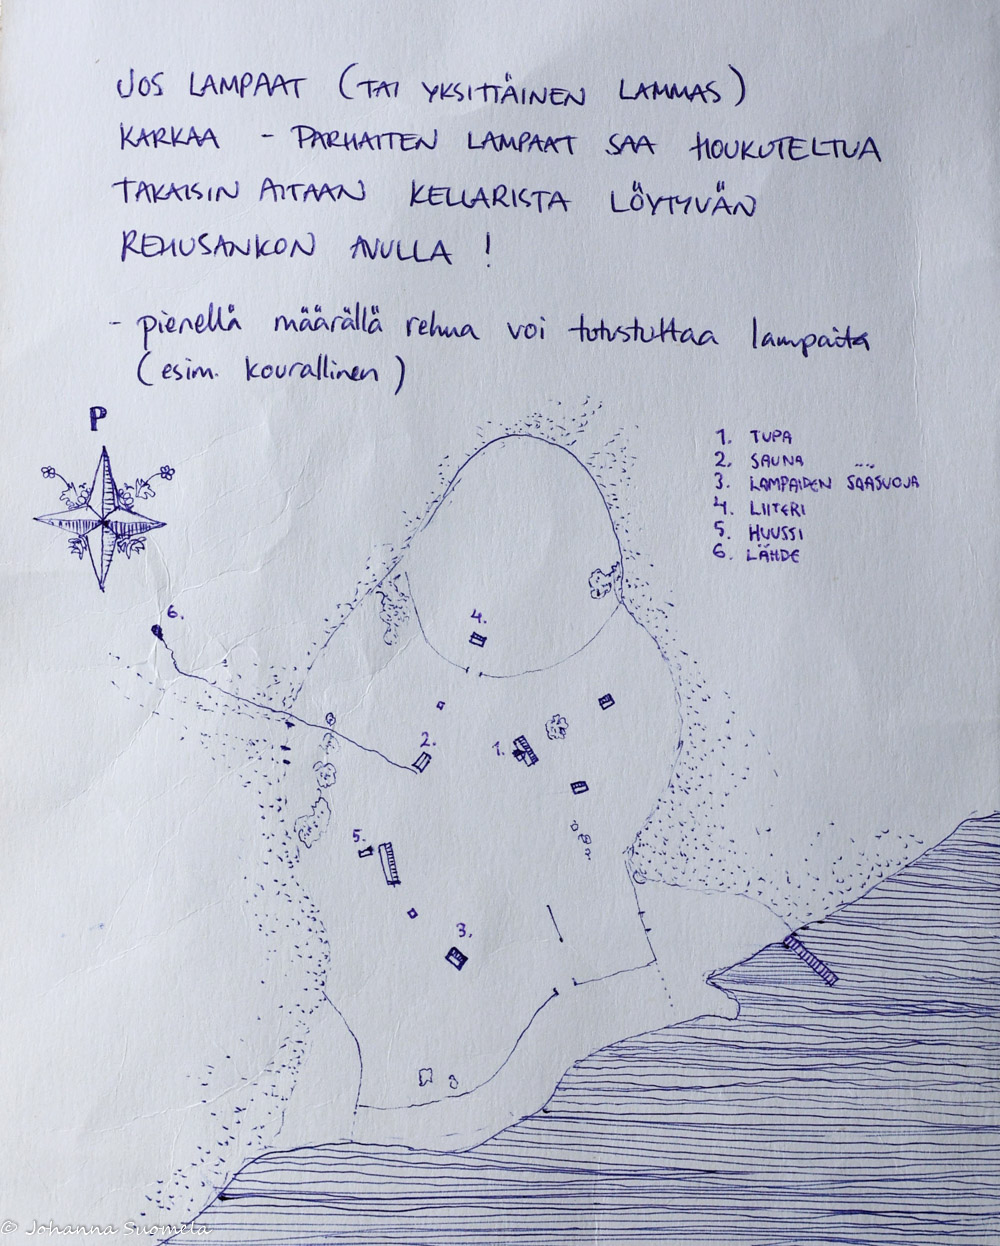 JOS LAMPAAT (TAI YKSITTÄINEN LAMMAS)
KARKAA - PARHAITEN LAMPAAT SAA HOUKUTELTUA
TAKAISIN AITAAN KELLARISTA LÖYTYVÄN
REHUSANKON AVULLA !
- pienellä määrällä rehua voi totustuttaa lampaita
(esim. kourallinen)
P
1. TUPA
2. SAUNA
3. LAMPAIDEN SÄÄSUOJA
4. LIITERI
5. HUUSSI
6. LÄHDE
6.
4.
2.
1.
5.
3.
© Johanna Suomela